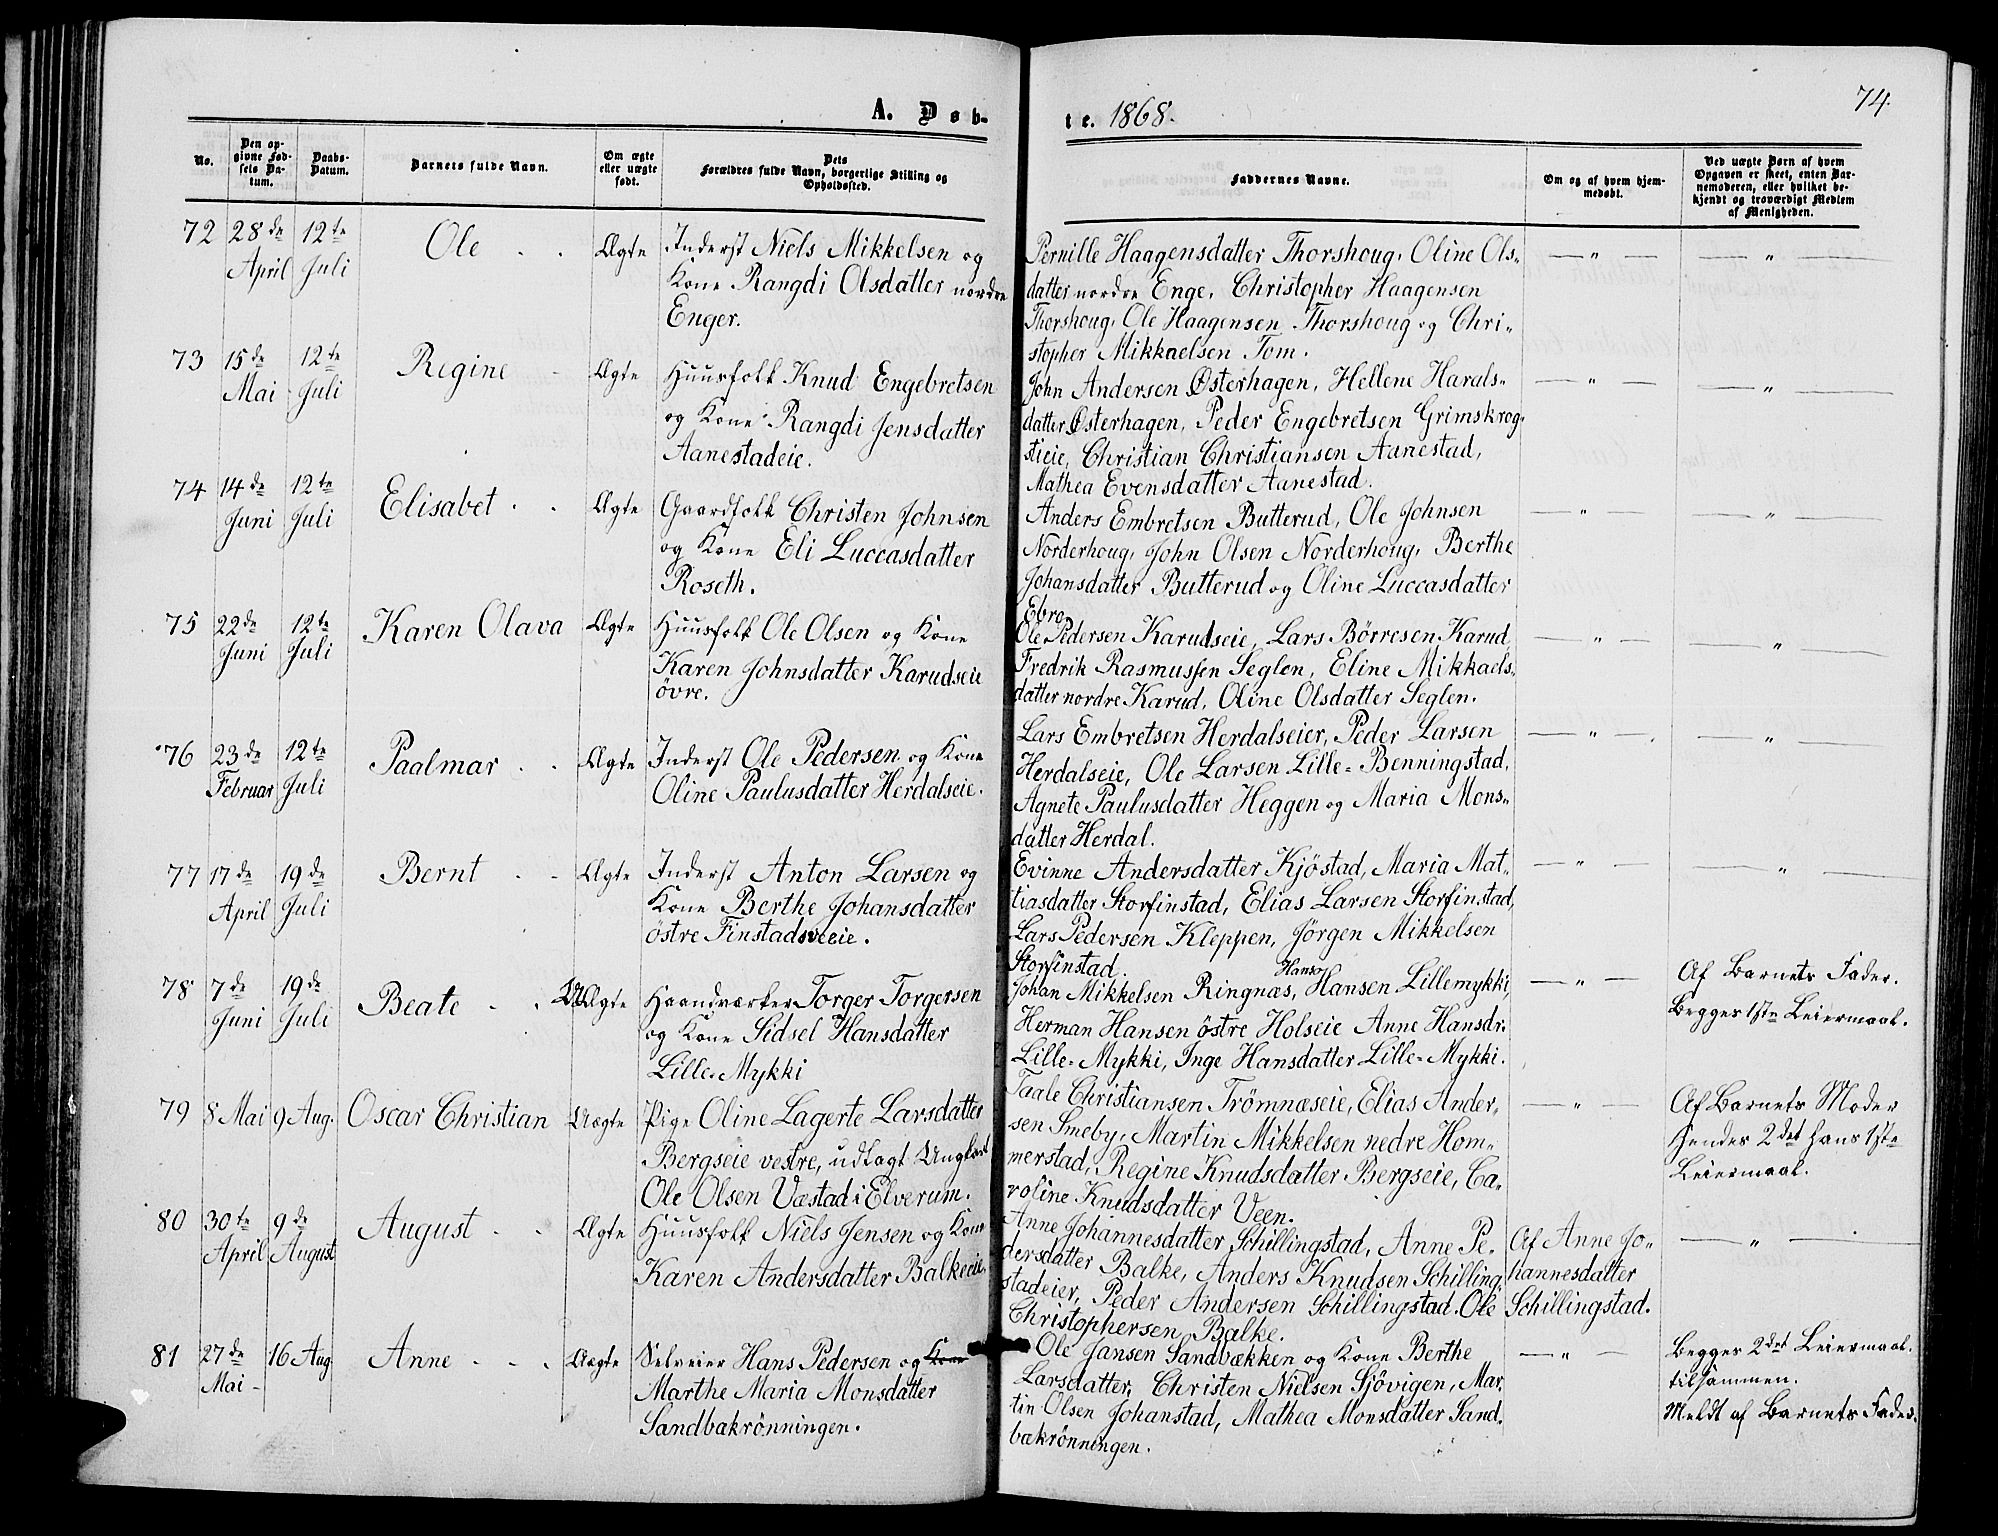 74.
A. Døb-
te. 1868.
No.
Den op-
givne Fød-
sels Da-
tum.
Daabs-
Datum.
Barnets fulde Navn.
Om ægte
eller uægte
født.
Dets
Forældres fulde Navn, borgerlige Stilling og
Opholdssted.
Faddernes Navne.
Om og af hvem hjem-
medøbt.
Ved uægte Børn af hvem
Opgaven er skeet, enten Bar-
nemoderen, eller hvilket be-
kjendt og troværdigt Medlem
af Menigheden.
72 28de 12te Ole Ægte Inderst Niels Mikkelsen og
April Juli Kone Rangdi Olsdatter nordre
Enger.
Pernille Haagensdatter Thorshoug, Oline Ols-
datter nordre Enge, Christopher Haagensen
Thorshoug, Ole Haagensen Thorshoug og Chri-
stopher Mikkaelsen Tom.
— " — — " —
73 15de 12te Regine Ægte Huusfolk Knud Engebretsen
Mai Juli og Kone Rangdi Jensdatter
Aanestadeie.
John Andersen Østerhagen, Hellene Harals-
datter Østerhagen, Peder Engebretsen Grimskrog-
stieie, Christian Christiansen Aanestad,
Mathea Evensdatter Aanestad.
— " — — " —
74 14de 12te Elisabet Ægte Gaardfolk Christen Johnsen
Juni Juli og Kone Eli Luccasdatter
Roseth.
Anders Embretsen Butterud, Ole Johnsen
Norderhoug, John Olsen Norderhoug, Berthe
Johansdatter Butterud og Oline Luccasdatter
Ebro.
— " — — " —
75 22de 12te Karen Olava Ægte Huusfolk Ole Olsen og Kone
Juni Juli Karen Johnsdatter Karudseie
övre.
Ole Pedersen Karudseie, Lars Börresen Karud,
Fredrik Rasmussen Seglen, Eline Mikkaels-
datter nordre Karud, Oline Olsdatter Seglen.
— " — — " —
76 23de 12te Paalmar Ægte Inderst Ole Pedersen og Kone
Februar Juli Oline Paulusdatter Herdalseie.
Lars Embretsen Herdalseier, Peder Larsen
Herdalseie, Ole Larsen Lille-Benningstad,
Agnete Paulusdatter Heggen og Maria Mons-
datter Herdal.
— " — — " —
77 17de 19de Bernt Ægte Inderst Anton Larsen og
April Juli Kone Berthe Johansdatter
östre Finstadsveeie.
Evinne Andersdatter Kjöstad, Maria Mat-
tiasdatter Storfinstad, Elias Larsen Storfinstad,
Lars Pedersen Kleppen, Jörgen Mikkelsen
Storfinstad.
— " — — " —
78 7de 19de Beate UÆgte Haandværker Torger Torgersen
Juni Juli og Kone Sidsel Hansdatter
Lille-Mykki
Hans
Johan Mikkelsen Ringnæs, Hansen Lillemykki,
Herman Hansen östre Holseie Anne Hansdr.
Lille-Mykki, Inge Hansdatter Lille-Mykki.
— " —
Af Barnets Fader.
Begges 1ste Leiermaal.
79 8 Mai 9 Aug. Oscar Christian Uægte Pige Oline Lagerte Larsdatter
Bergseie vestre, udlagt Ungkarl
Ole Olsen Væstad i Elverum.
Taale Christiansen Trömnæseie, Elias Ander-
sen Smeby, Martin Mikkelsen nedre Hom-
merstad, Regine Knudsdatter Bergseie, Ca-
roline Knudsdatter Veen.
— " —
Af Barnets Moder
Hendes 2det hans 1ste
Leiermaal.
80 30te 9de August Ægte Huusfolk Niels Jensen og Kone
April August Karen Andersdatter Balkeeie.
Anne Johannesdatter Schillingstad, Anne Pe-
dersdatter Balke, Anders Knudsen Schilling-
stadeier, Peder Andersen Schillingstad. Ole
Christophersen Balke.
Af Anne Jo-
hannesdatter
Schillingstad.
— " —
81 27de 16 Aug Anne Uægte Selveier Hans Pedersen og Kone
Mai Marthe Maria Monsdatter
Sandbakrönningen.
Ole Jansen Sandbækken og Kone Berthe
Larsdatter, Christen Nielsen Sjövigen, Mar-
tin Olsen Johanstad, Mathea Monsdatter Sand-
bækrönningen.
— " —
Begges 2det Leiermaal
tilsammen.
Meldt af Barnets Fader.